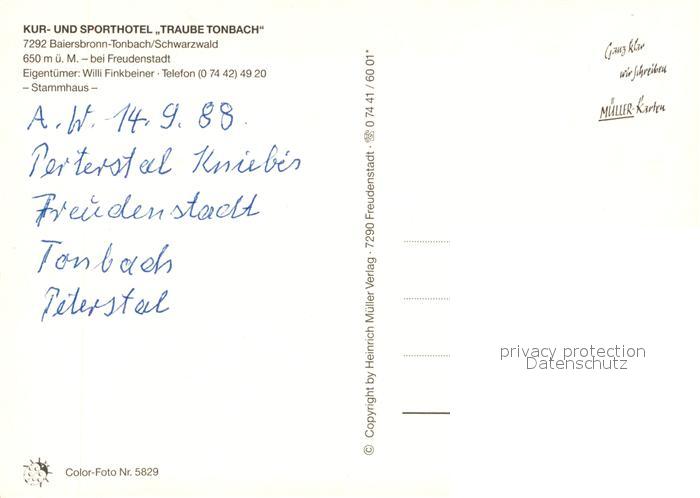 KUR- UND SPORTHOTEL „TRAUBE TONBACH“
7292 Baiersbronn-Tonbach/Schwarzwald
650 m ü. M. – bei Freudenstadt
Eigentümer: Willi Finkbeiner · Telefon (0 74 42) 49 20
– Stammhaus –
A. W. 14. 9. 88.
Perterstal Kniebis
Freudenstadt
Tonbach
Peterstal
Color-Foto Nr. 5829
© Copyright by Heinrich Müller Verlag · 7290 Freudenstadt · ☏ 0 74 41 / 60 01*
Ganz klar
wir schreiben
MÜLLER-Karten
privacy protection
Datenschutz